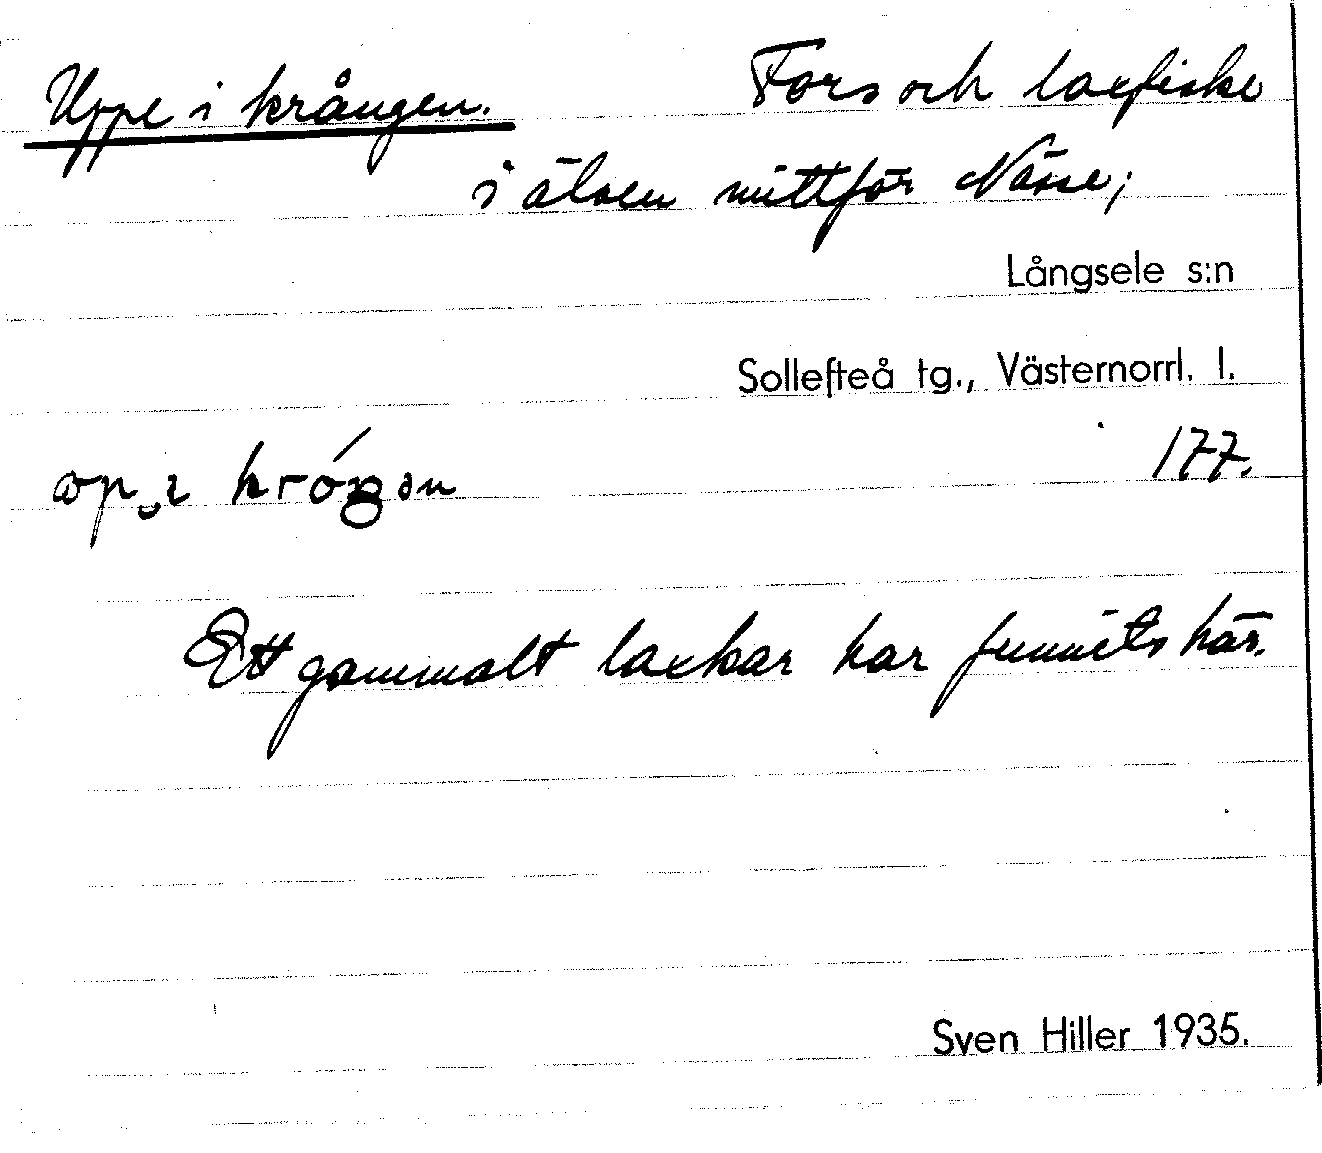 Uppe i krången. Fors och laxfiske
i älven mittför Nässe;
Långsele s:n
Sollefteå tg., Västernorrl. l.
177.
Ett gammalt laxkar har funnits här.
Sven Hiller 1935.